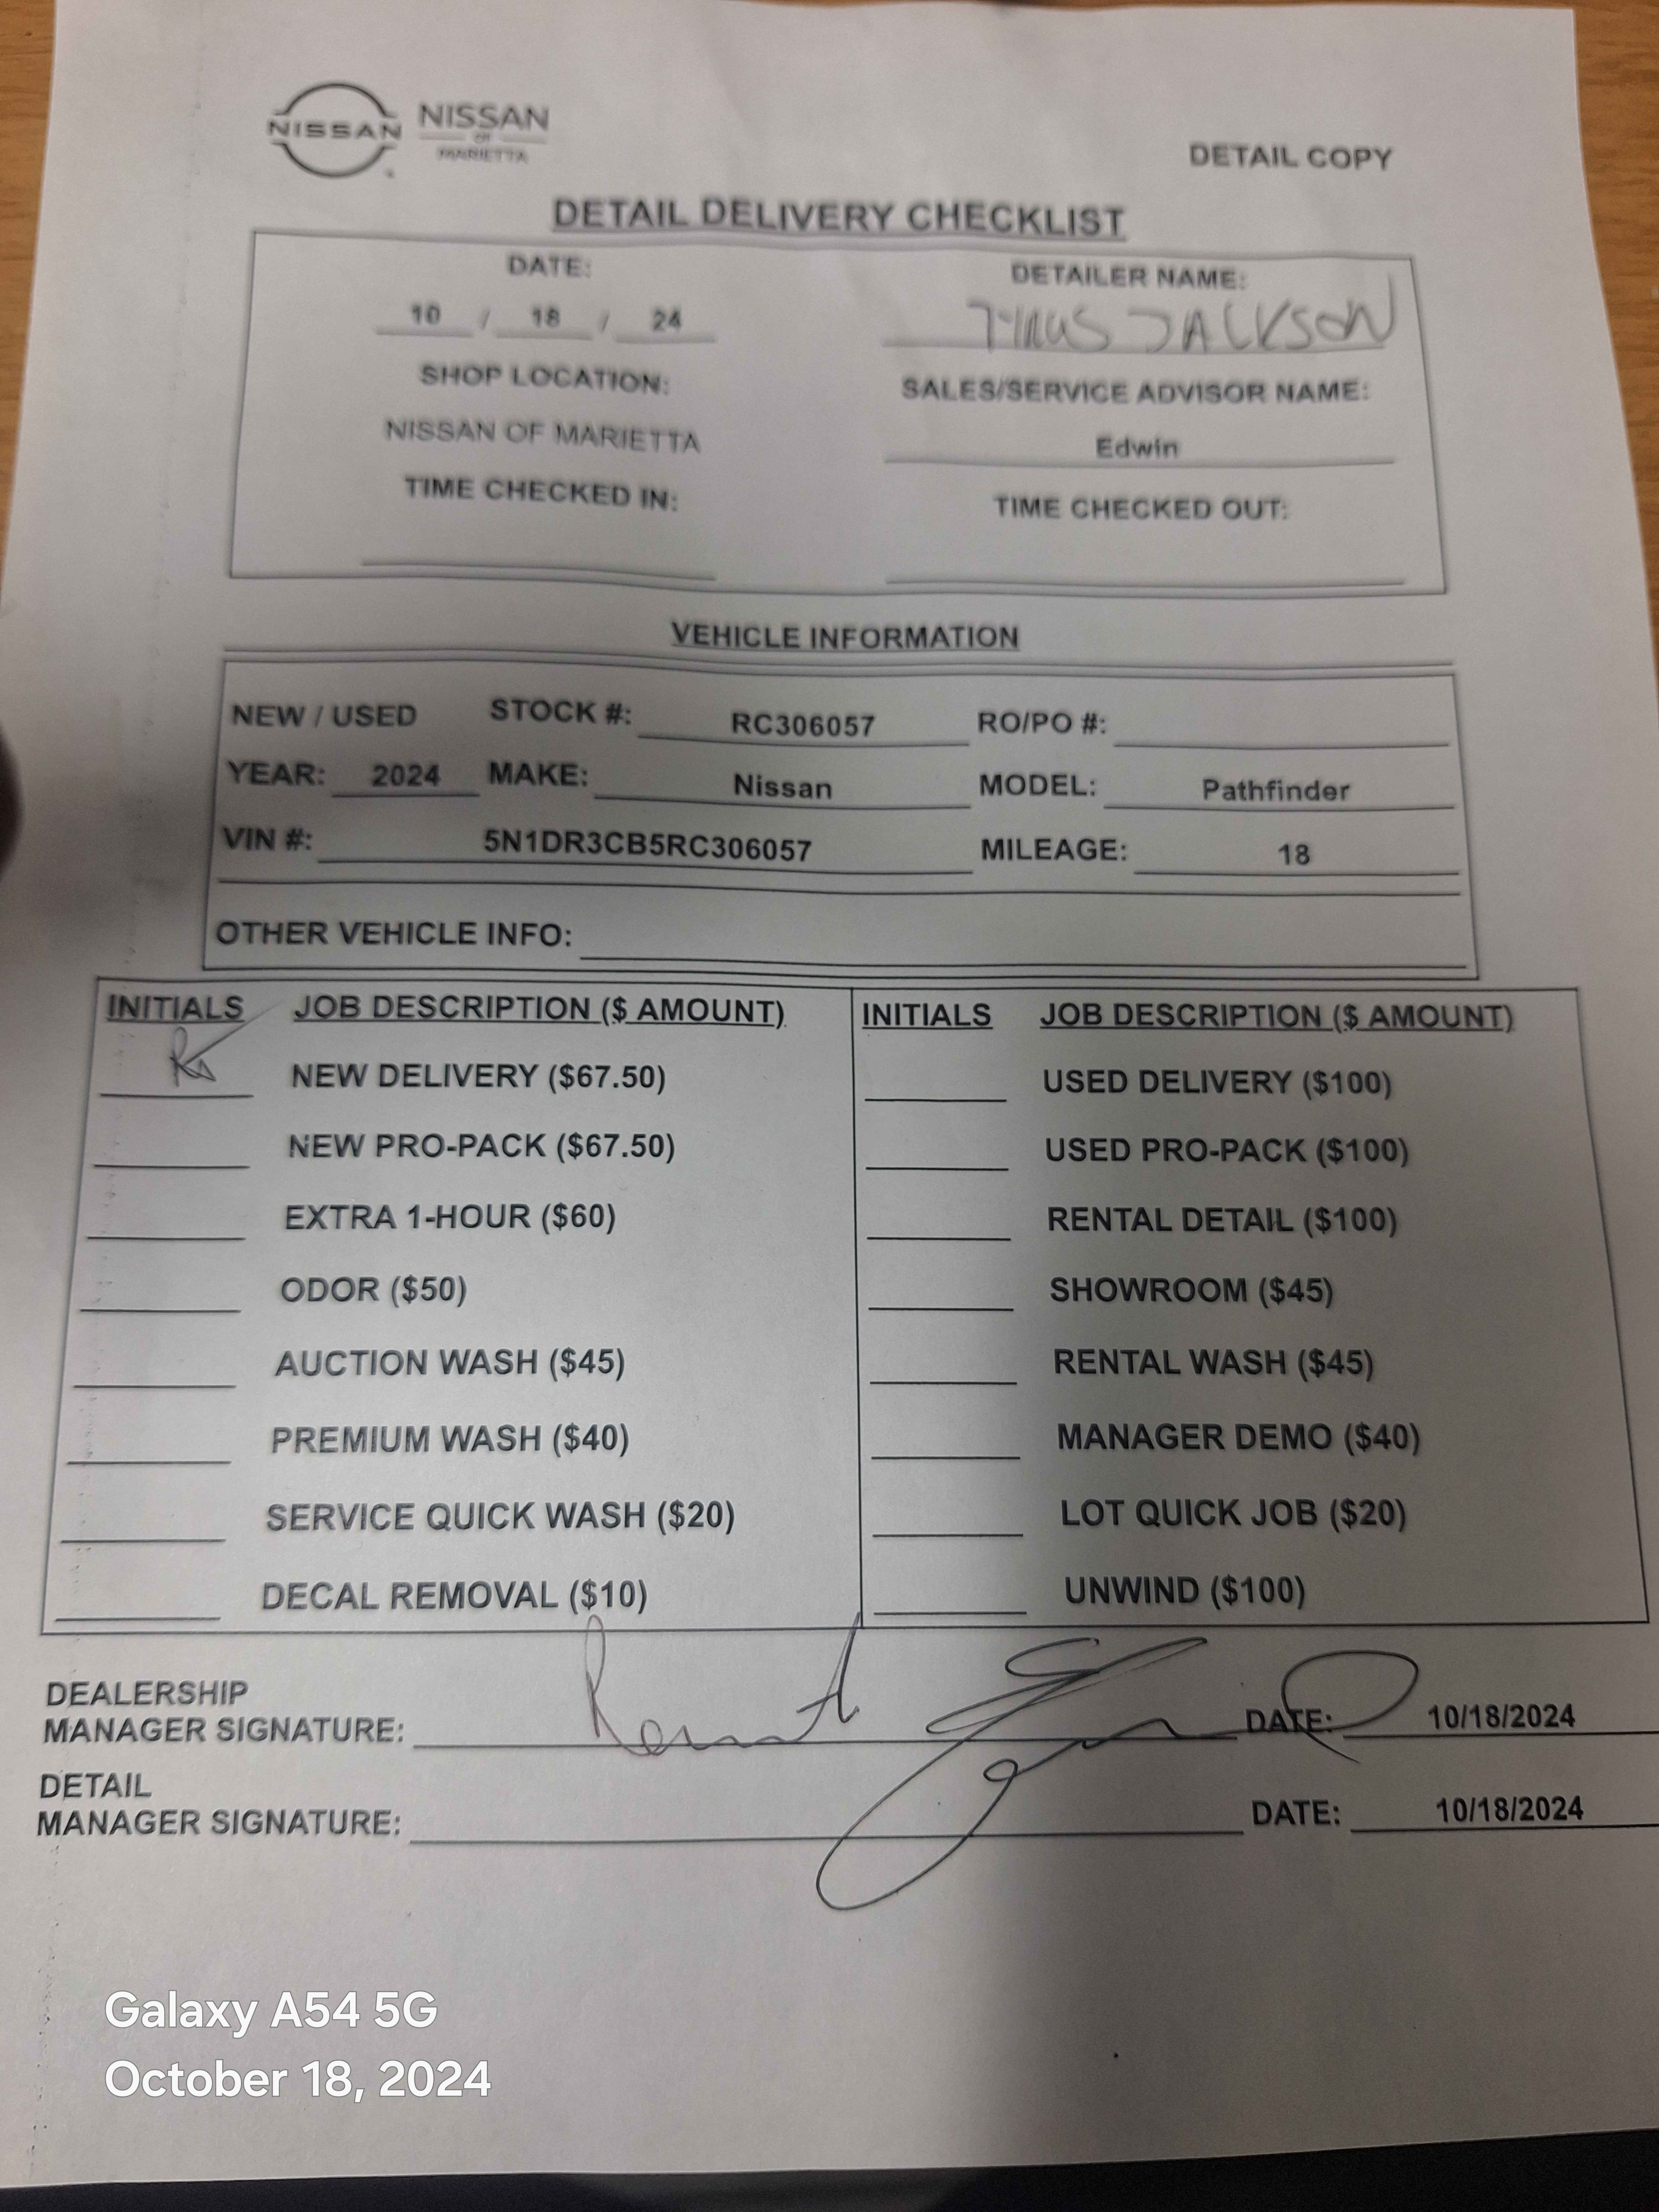 NISSAN NISSAN
OF
MARIETTA
DETAIL COPY
DETAIL DELIVERY CHECKLIST
DATE: DETAILER NAME:
10 / 18 / 24 JACKSON
SHOP LOCATION: SALES/SERVICE ADVISOR NAME:
NISSAN OF MARIETTA Edwin
TIME CHECKED IN: TIME CHECKED OUT:
VEHICLE INFORMATION
NEW / USED STOCK #: RC306057 RO/PO #:
YEAR: 2024 MAKE: Nissan MODEL: Pathfinder
VIN #: 5N1DR3CB5RC306057 MILEAGE: 18
OTHER VEHICLE INFO:
INITIALS JOB DESCRIPTION ($ AMOUNT) INITIALS JOB DESCRIPTION ($ AMOUNT)
NEW DELIVERY ($67.50) USED DELIVERY ($100)
NEW PRO-PACK ($67.50) USED PRO-PACK ($100)
EXTRA 1-HOUR ($60) RENTAL DETAIL ($100)
ODOR ($50) SHOWROOM ($45)
AUCTION WASH ($45) RENTAL WASH ($45)
PREMIUM WASH ($40) MANAGER DEMO ($40)
SERVICE QUICK WASH ($20) LOT QUICK JOB ($20)
DECAL REMOVAL ($10) UNWIND ($100)
DEALERSHIP
MANAGER SIGNATURE: DATE: 10/18/2024
DETAIL
MANAGER SIGNATURE: DATE: 10/18/2024
Galaxy A54 5G
October 18, 2024